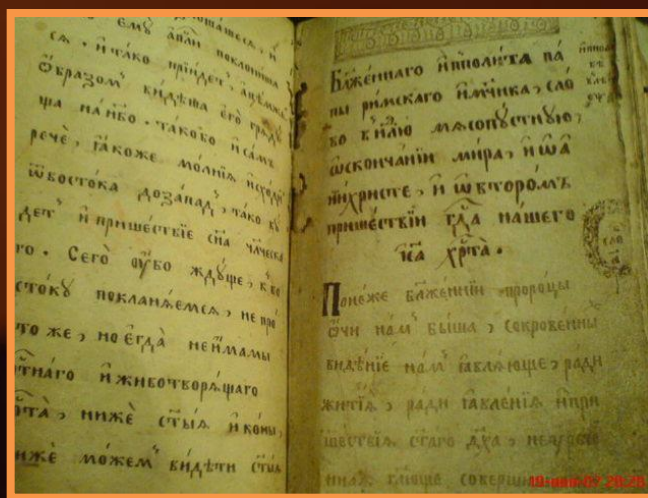 емъ апⷭ҇ли поклониша
сѧ. и тако прїидетъ, ацѣмже
ѻбразомъ видѣша его грѧдꙋ
ща на нб҃о. такобо и самъ
рече, ꙗкоже молнїѧ исходи
ѿ востока до запад, тако бꙋ
детъ и пришествїе сн҃а чл҃ческа
го. Сего ᲂубо ждꙋще, к во
стокꙋ покланѧемсѧ, не про
то же, но егда не имамы
и животворѧщаго
хрⷭ҇та, ниже ст҃ыѧ иконы,
ниже можемъ видѣти ст҃ыѧ
Блаженнаго ипполита па
пы римскаго и мч҃нка, сло
во в нⷣлю мѧсопꙋстнꙋю,
ѡ скончанїи мира, и ѡ а
нтихристе, и ѡ второмъ
пришествїи гдⷭ҇а нашего
іс҃а хрⷭ҇та.
Понеже блаженнїи пророцы
ѻчи намъ быша, сокровенны
видѣнїе намъ ꙗвлѧюще, ради
житїѧ, ради ꙗвленїѧ и при
шествїѧ ст҃аго дх҃а,
совершен
20:20